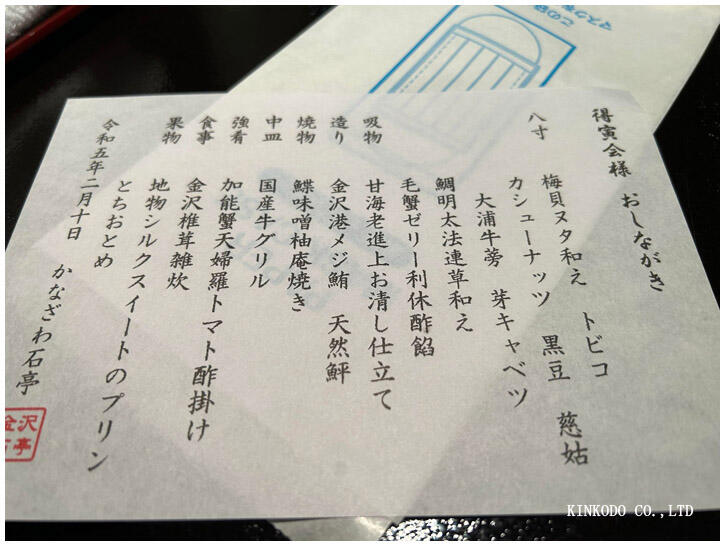 得寅会様 おしながき
八寸 梅貝ヌタ和え トビコ
カシューナッツ 黒豆 慈姑
大浦牛蒡 芽キャベツ
鯛明太法連草和え
毛蟹ゼリー利休酢餡
吸物 甘海老進上お清し仕立て
造り 金沢港メジ鮪 天然鮃
焼物 鰈味噌柚庵焼き
中皿 国産牛グリル
強肴 加能蟹天婦羅トマト酢掛け
食事 金沢椎茸雑炊
果物 地物シルクスイートのプリン
とちおとめ
令和五年二月十日 かなざわ石亭
金沢
石亭
KINKODO CO.,LTD